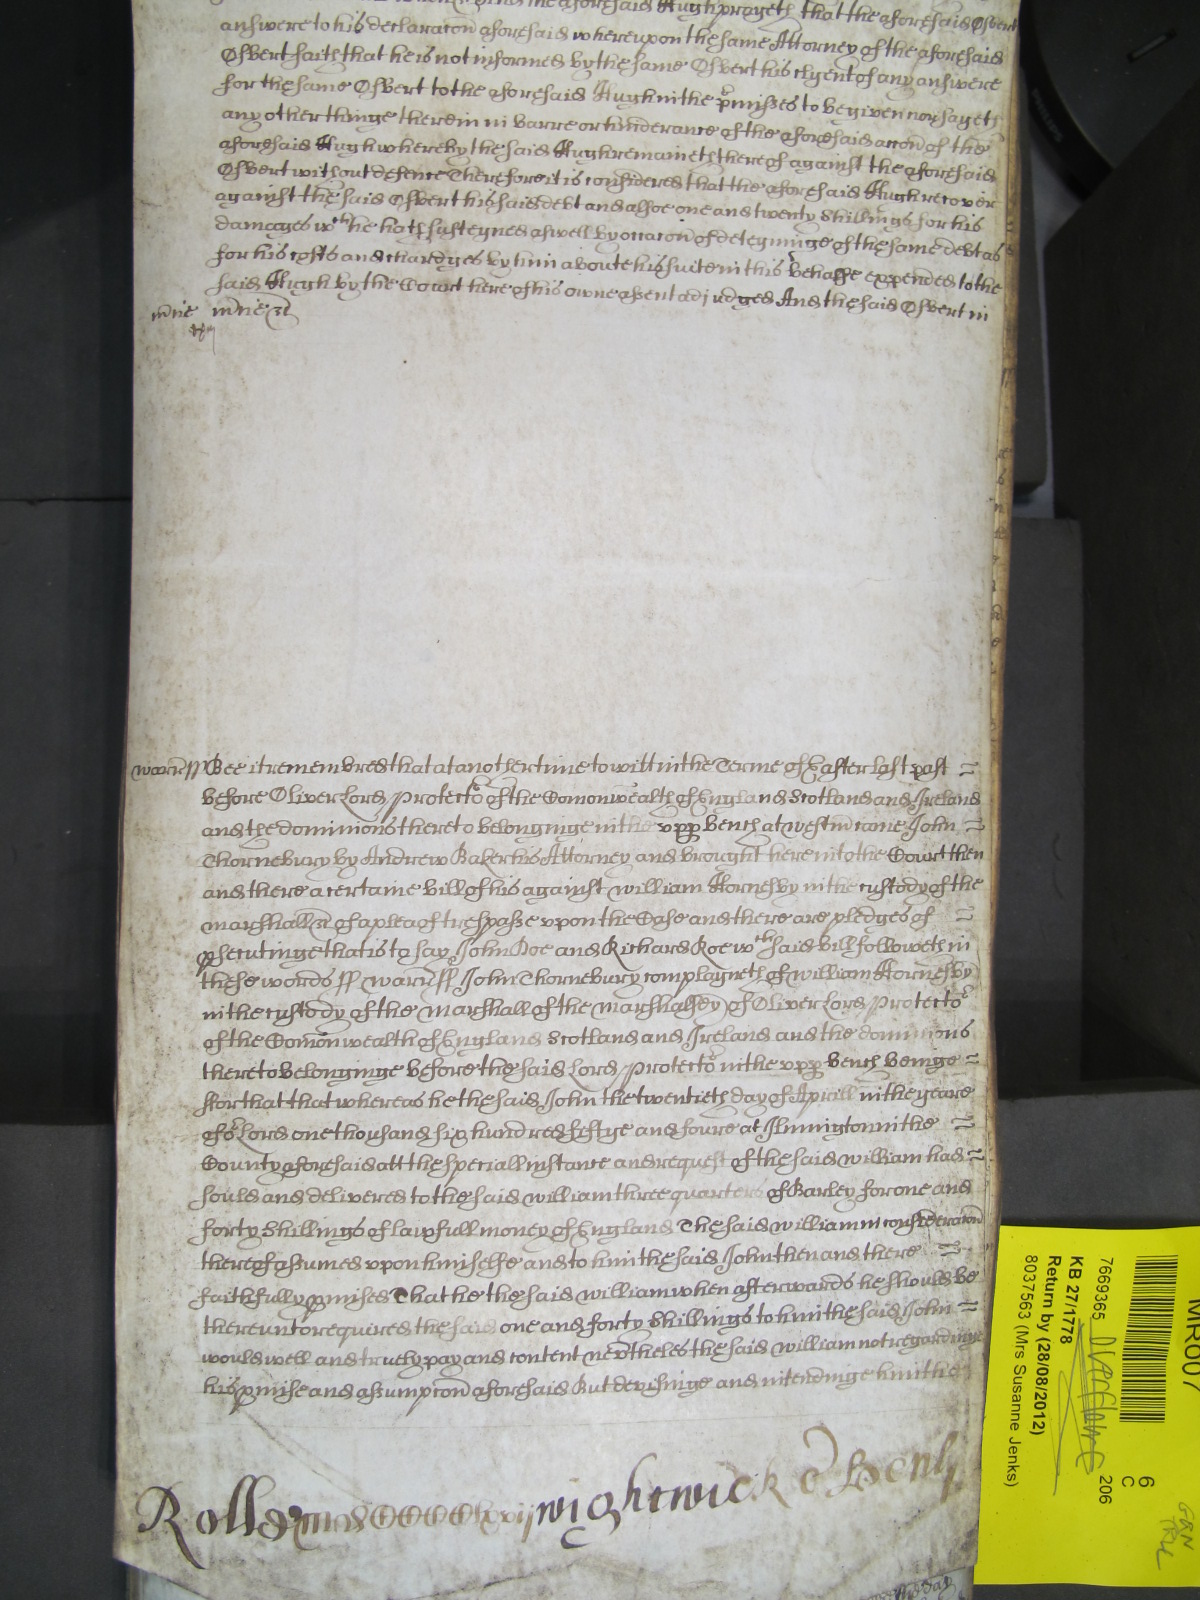 the aforesaid Hugh prayeth that the aforesaid Osbert
answere to his declaracon aforesaid whereupon the same Attorney of the aforesaid
Osbert saith that he is not informed by the same Osbert his clyent of any answere
for the same Osbert to the aforesaid Hugh in the pmisses to be given nor sayeth
any other thinge therein in barre or hinderance of the aforesaid accon of the
aforesaid Hugh whereby the said Hugh remaineth thereof against the aforesaid
Osbert without defence Therefore it is considered that the aforesaid Hugh recover
against the said Osbert his said debt and alsoe one and twenty shillings for his
damages wth he hath susteyned aswell by occacon of deteyninge of the same debt as
for his costs and chardges by him aboute his suite in this behalfe expended to the
said Hugh by the Court here of his owne assent adjudged And the said Osbert in
mie mie &c
warr ss Bee it remembred that at another time to witt in the Terme of Easter last past
before Oliver Lord Protector of the Comonwealth of England Scotland and Ireland
and the dominions thereto belonginge in the upp bench at westm came John
Thornebury by Andrew Baker his Attorney and brought here into the Court then
and there a certaine bill of his against william Hornesby in the custody of the
marshall &c of a plea of trespasse upon the Case and there are pledges of
psecutinge that is to say John Doe and Richard Roe wth said bill followeth in
these words ss warr ss John Thornebury complayneth of william Hornesby
in the custody of the marshall of the marshalsey of Oliver Lord Protector
of the Comonwealth of England Scotland and Ireland and the dominions
thereto belonginge before the said Lord Protector in the upp bench beinge
For that that whereas he the said John the twentieth day of Aprill in the yeare
of or Lord one thousand six hundred fiftye and foure at Ilmington in the
County aforesaid att the speciall instance and request of the said william had
sould and delivered to the said william three quarters of Barley for one and
forty shillings of lawfull money of England The said william in consideracon
thereof assumed upon himselfe and to him the said John then and there
faithfully pmised That he the said william when afterwards he should be
thereunto requered the said one and forty shillings to him the said John
would well and truely pay and content nevtheles the said william not regardinge
his pmise and assumpcon aforesaid But devisinge and intendinge him the
Rolle wightwick
MR007
7669365
KB 27/1778
Return by (28/08/2012)
8037563 (Mrs Susanne Jenks)
6
C
206